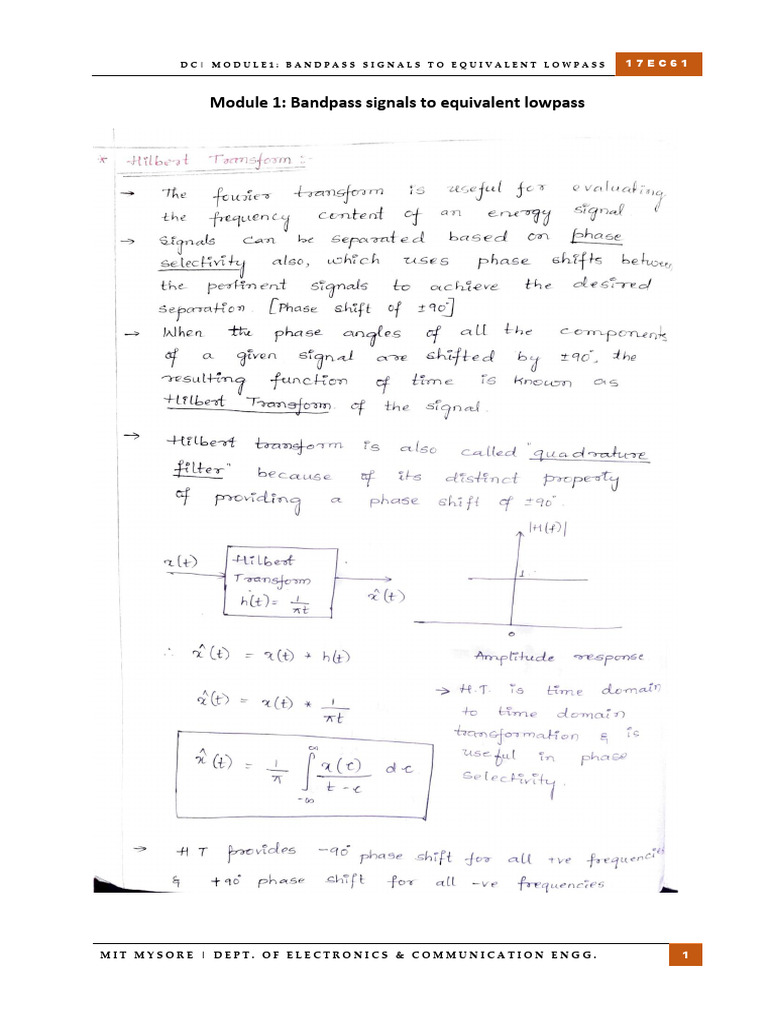 DC| MODULE1: BANDPASS SIGNALS TO EQUIVALENT LOWPASS 17EC61
Module 1: Bandpass signals to equivalent lowpass
* Hilbert Transform :-
→ The fourier transform is useful for evaluating
the frequency content of an energy signal.
→ Signals can be separated based on phase
selectivity also, which uses phase shifts between
the pertinent signals to achieve the desired
separation. [Phase shift of ±90°]
→ When the phase angles of all the components
of a given signal are shifted by ±90°, the
resulting function of time is known as
Hilbert Transform of the signal.
→ Hilbert transform is also called "quadrature
filter" because of its distinct property
of providing a phase shift of ±90°.
|H(f)|
x(t)
Hilbert
Transform
h(t) = 1/πt
x̂(t)
1
0
Amplitude response
∴ x̂(t) = x(t) * h(t)
x̂(t) = x(t) * 1/πt
x̂(t) = 1/π ∫_{-∞}^{∞} x(τ)/(t-τ) dτ
→ H.T. is time domain
to time domain
transformation & is
useful in phase
selectivity.
→ HT provides -90° phase shift for all +ve frequencies
& +90° phase shift for all -ve frequencies
MIT MYSORE | DEPT. OF ELECTRONICS & COMMUNICATION ENGG. 1